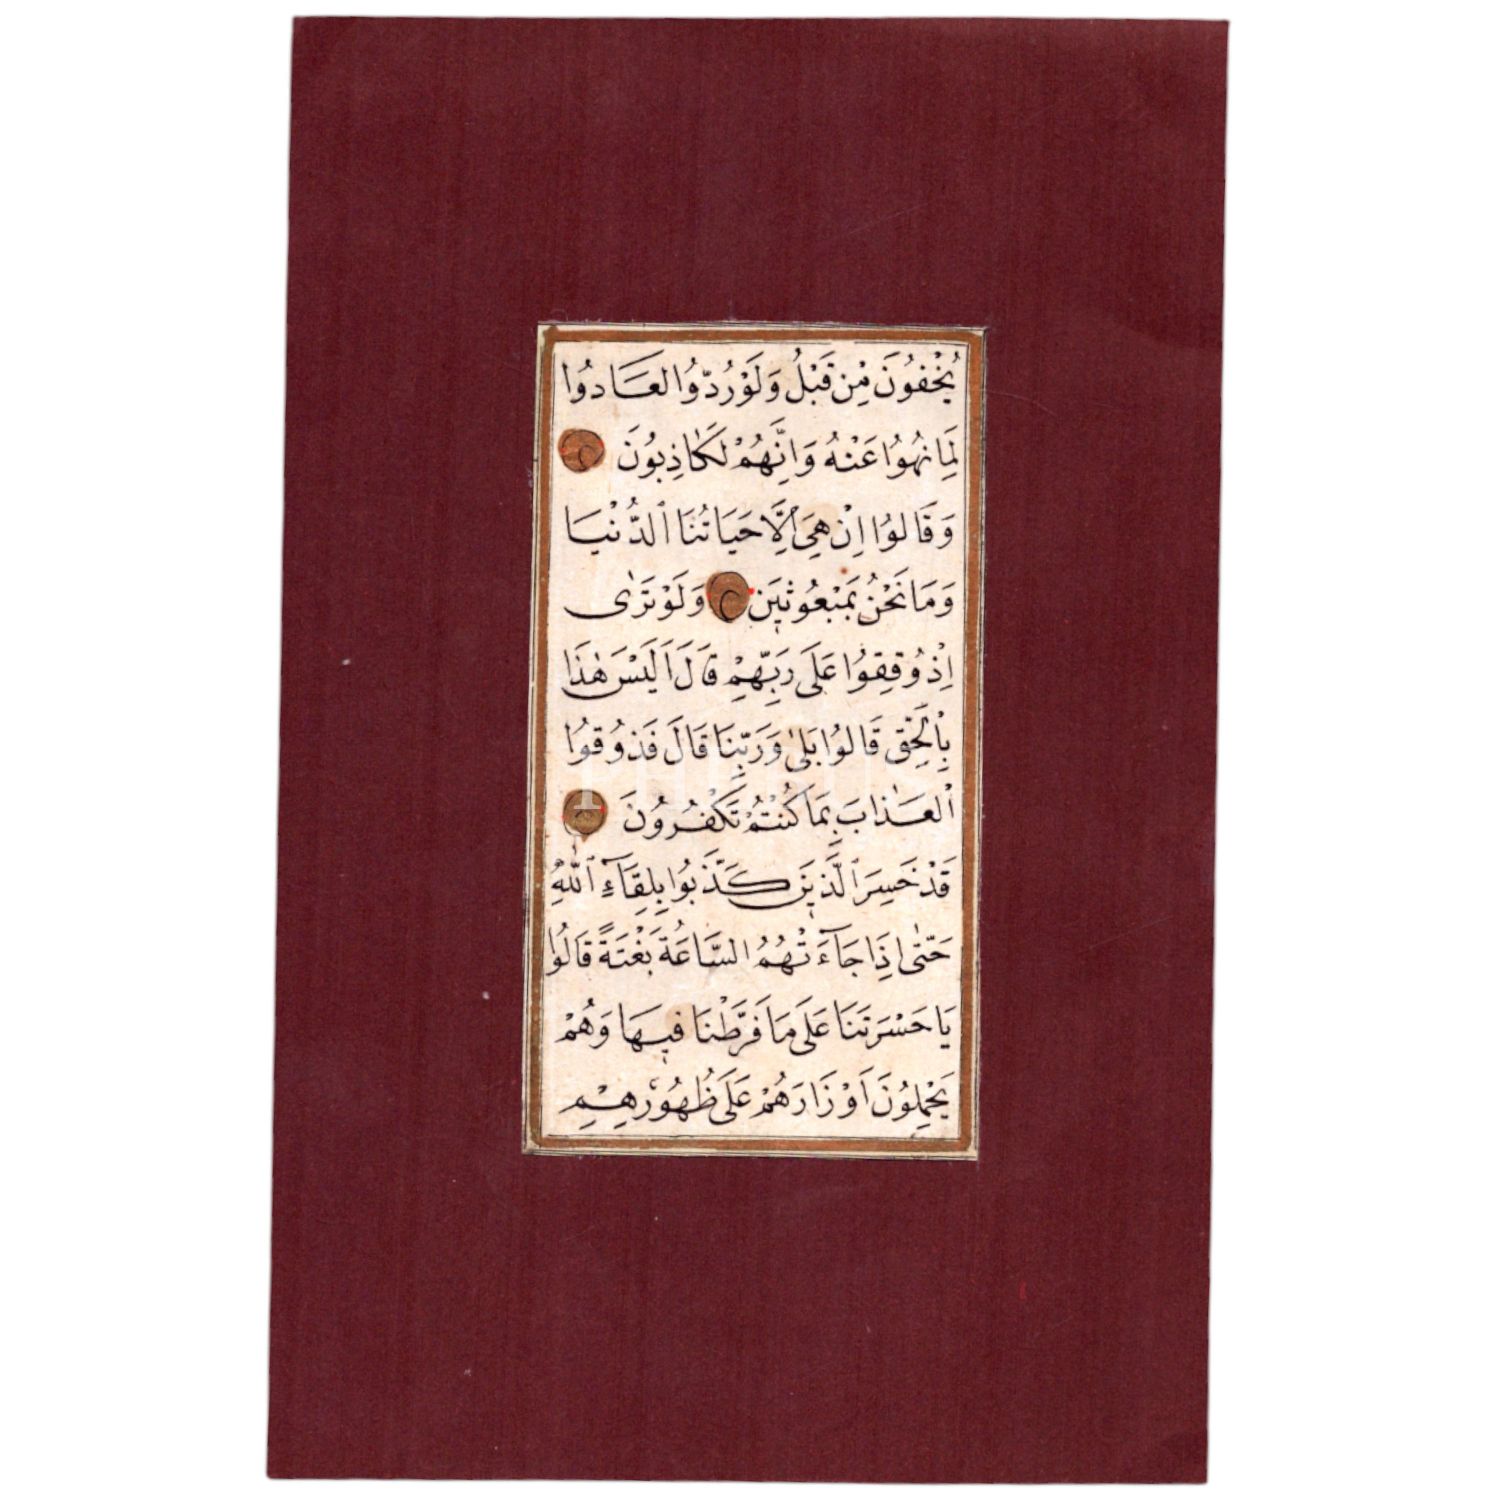 يُخْفُونَ مِنْ قَبْلُ وَلَوْ رُدُّوا لَعَادُوا
لِمَا نُهُوا عَنْهُ وَاِنَّهُمْ لَكَاذِبُونَ
وَقَالُوا اِنْ هِيَ اِلَّا حَيَاتُنَا الدُّنْيَا
وَمَا نَحْنُ بِمَبْعُوثٖينَ وَلَوْ تَرٰى
اِذْ وُقِفُوا عَلَى رَبِّهِمْ قَالَ اَلَيْسَ هٰذَا
بِالْحَقِّ قَالُوا بَلٰى وَرَبِّنَا قَالَ فَذُوقُوا
الْعَذَابَ بِمَا كُنْتُمْ تَكْفُرُونَ
قَدْ خَسِرَ الَّذٖينَ كَذَّبُوا بِلِقَآءِ اللّٰهِ
حَتّٰى اِذَا جَآءَتْهُمُ السَّاعَةُ بَغْتَةً قَالُوا
يَا حَسْرَتَنَا عَلَى مَا فَرَّطْنَا فٖيهَا وَهُمْ
يَحْمِلُونَ اَوْزَارَهُمْ عَلَى ظُهُورِهِمْ
PHEBUS